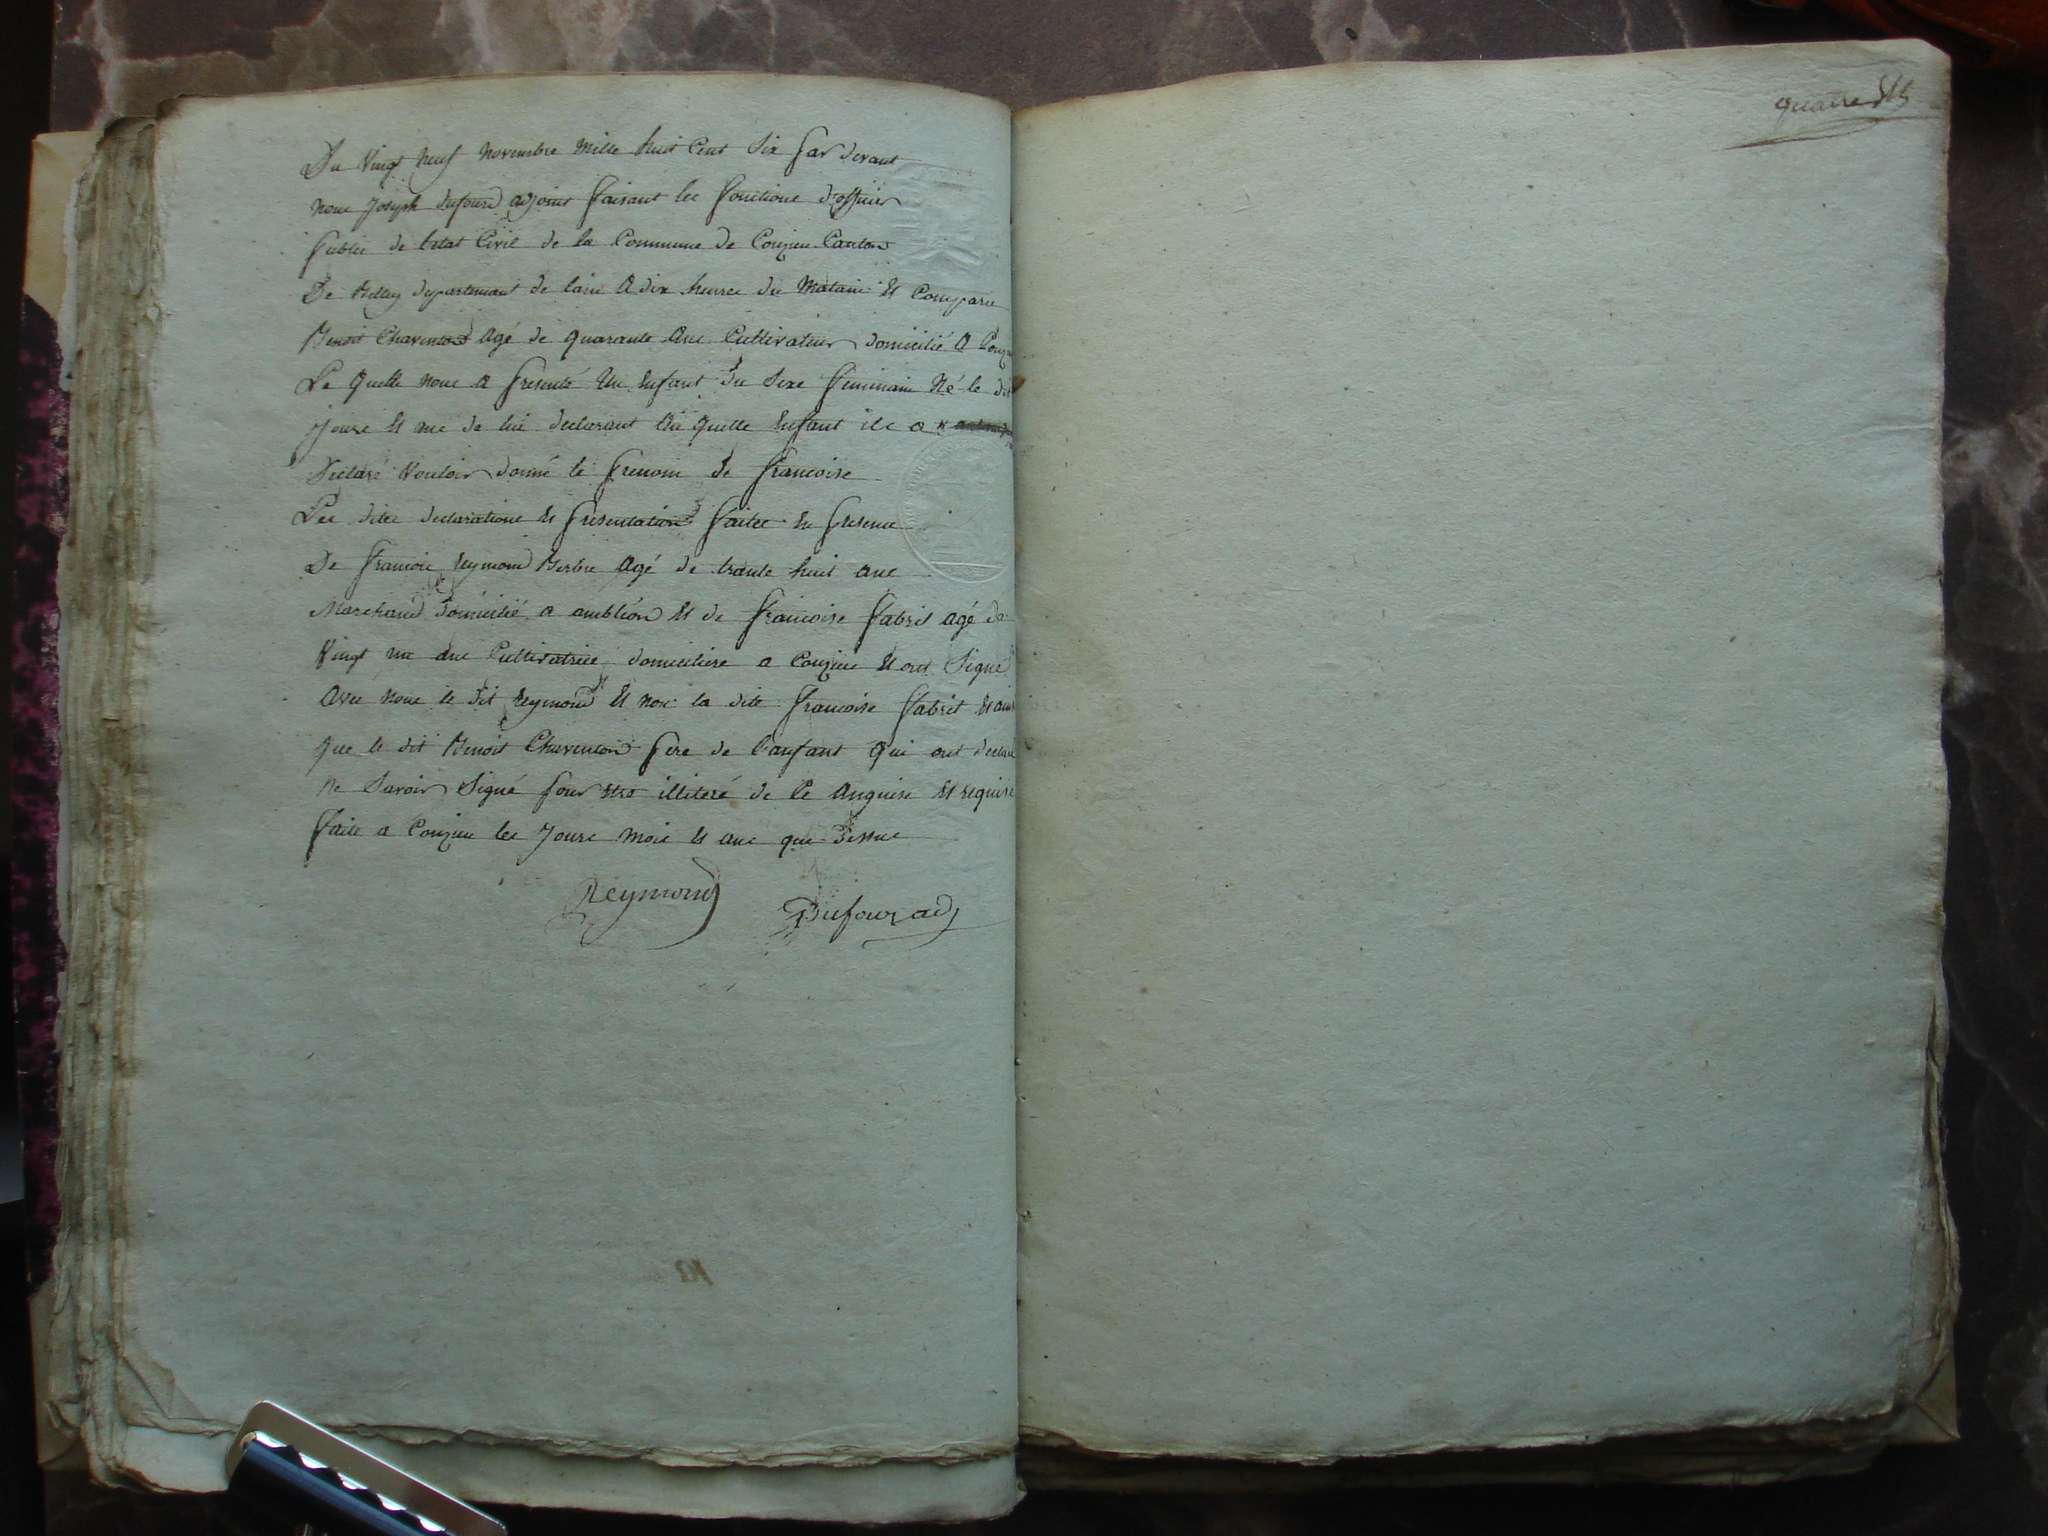 Du vingt neuf novembre mille huit cent six par devant
nous joseph dufour adjoint faisant les fonctions d'officier
public de letat civil de la commune de Conzieu Canton
De Belley departement de lain a dix heures du matain est comparu
Benoit Charinton agé de quarante ans cultivateur domicilié a
Le quelle nous a presenté un enfant du sexe feminain né le dit
jours et née de lui declarant au quelle enfant ile a
declaré vouloir donné le prenom de francoise
Les dites declarations et presentations faites en presence
De francois reymond agé de trante huit ans
Marchand domicilié a ambléon et de francoise fabri agé de
vingt un ans cultivatrice domiciliere a conzieu et ont signé
avec nous le dit reymond et non la dite francoise fabrit
que le dit Benoit Charinton pere de l'anfant qui ont declaré
ne savoir signé pour etre illiteré de ce anquire et require
faite a Conzieu les jours mois et ans que dessus
Reymond
Dufour adj
quatre